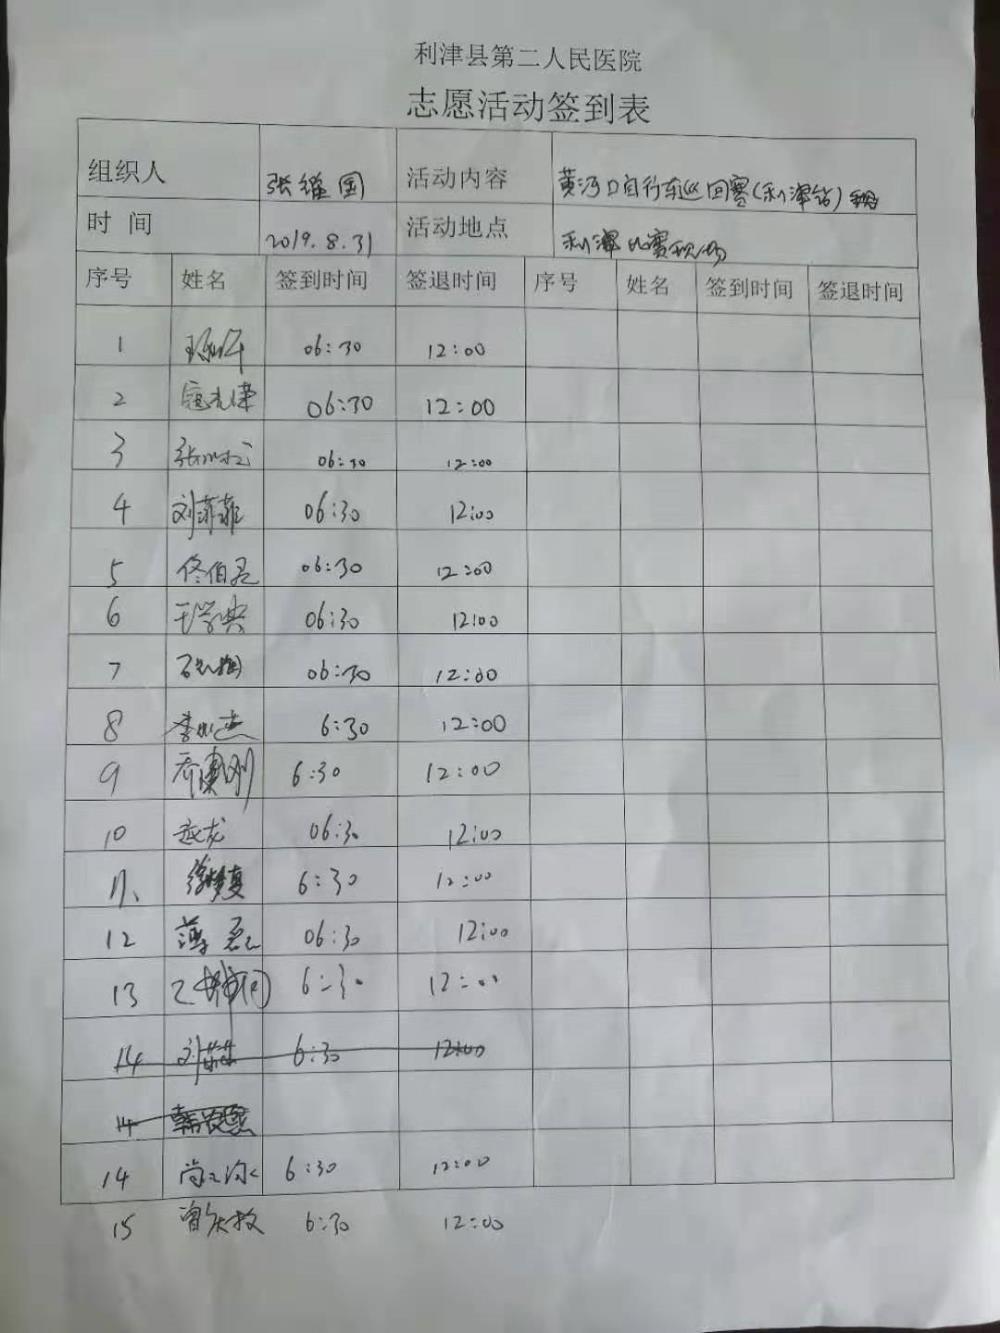 利津县第二人民医院
志愿活动签到表
组织人 张维国 活动内容 黄河口自行车巡回赛(利津站)
时间 2019.8.31 活动地点 利津比赛现场
序号 姓名 签到时间 签退时间 序号 姓名 签到时间 签退时间
1 06:30 12:00
2 06:30 12:00
3 06:30 12:00
4 刘菲菲 06:30 12:00
5 佟伯君 06:30 12:00
6 王学典 06:30 12:00
7 06:30 12:00
8 6:30 12:00
9 6:30 12:00
10 赵龙 06:30 12:00
11、 徐梦真 6:30 12:00
12 薄磊 06:30 12:00
13 6:30 12:00
14 刘菲菲 6:30 12:00
14
14 6:30 12:00
15 曾庆放 6:30 12:00